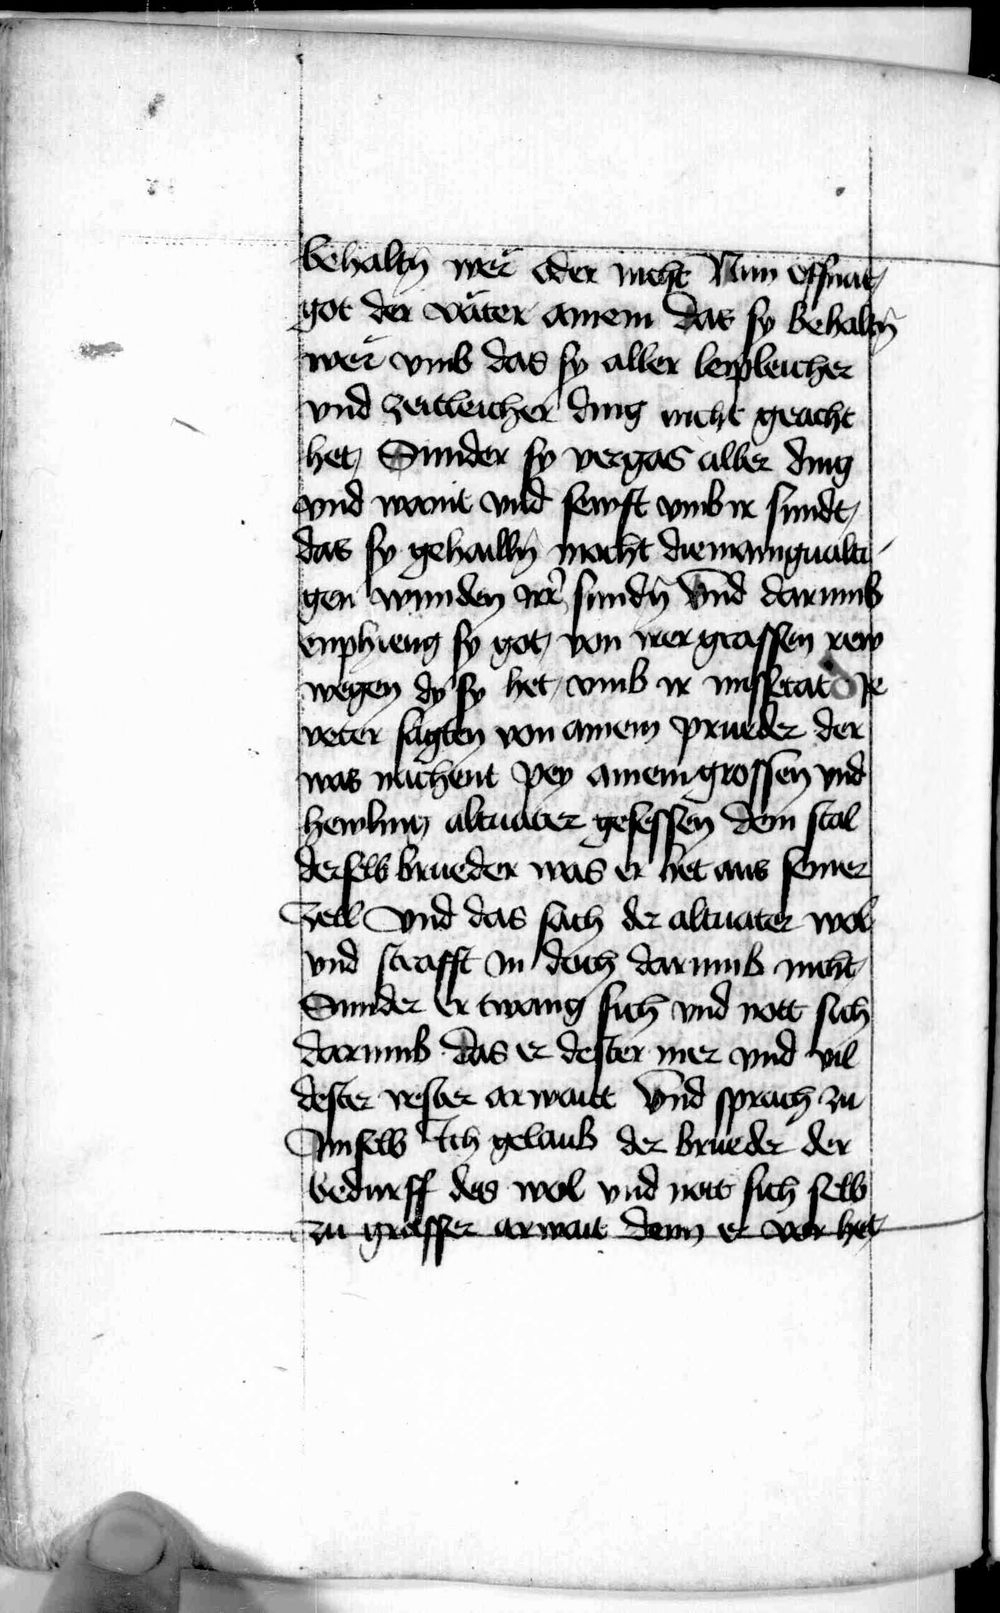 behaltn̄ wer oder nicht Nun offnat
got der väter ainem das sy behaltn̄
wer vmb das sy aller leipleicher
vnd zeitleicher ding nicht geacht
het Sunder sy vergas aller ding
vnd waint vnd sewfft vmb ir sundt
das sy gehailn̄ mocht die manigualti-
gen wunden irr sundn̄ Vnd darumb
enphieng sy got von irer grassen rew
wegen dy sy het vmb ir missetat Die
veter sagten von ainem prueder der
was nachent pey ainem grossen vnd
hewling altuater gesessen dem stal
derselb brueder was er het aus seiner
Zell Vnd das sach der altuater wol
vnd strafft in doch darumb nicht
Sunder er twang sich vnd nott sich
darumb das er dester mer vnd vil
dester vester arwait Vnd sprach zu
Im selb Ich gelaub der brueder der
bedurff des wol vnd nott sich selb
zu grösser arwait denn er vor het